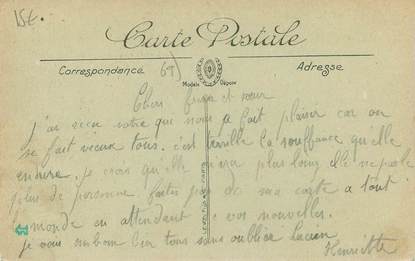 15t.
Carte Postale
Correspondance
69)
Adresse
Modèle Déposé
Chers frère et sœur
j'ai recu votre que nous a fait plaisir car on
se fait vieux tous. c'est terrible la souffrance qu'elle
endure. je crois qu'elle n'ira plus long elle ne parle
plus de personne. faites pas de ma carte a tout
le monde en attendant de vos nouvelles.
je vous embrasse bien tous sans oublier Lucien
Henriette